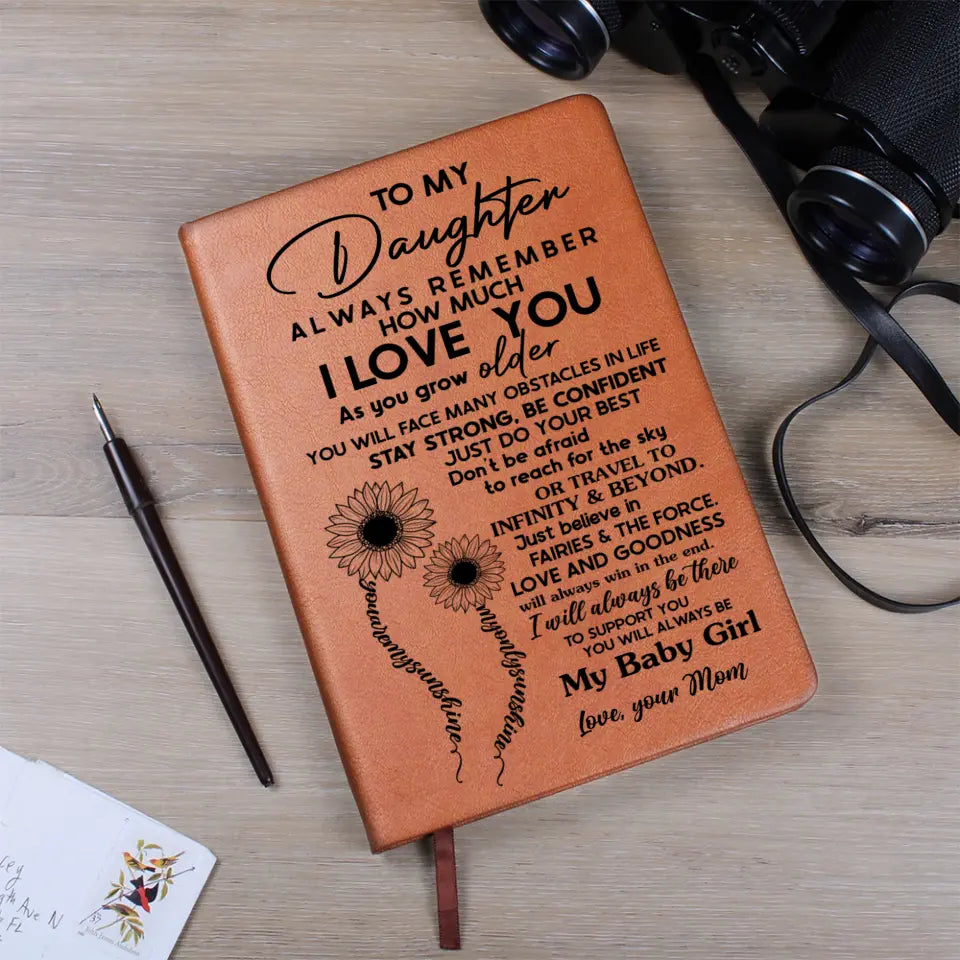 TO MY
Daughter
ALWAYS REMEMBER
HOW MUCH
I LOVE YOU
As you grow older
YOU WILL FACE MANY OBSTACLES IN LIFE
STAY STRONG, BE CONFIDENT
JUST DO YOUR BEST
Don't be afraid
to reach for the sky
OR TRAVEL TO
INFINITY & BEYOND.
Just believe in
FAIRIES & THE FORCE.
LOVE AND GOODNESS
will always win in the end.
I will always be there
TO SUPPORT YOU
YOU WILL ALWAYS BE
My Baby Girl
Love, your Mom
youaremysunshine
myonlysunshine
Ave N
FL
37